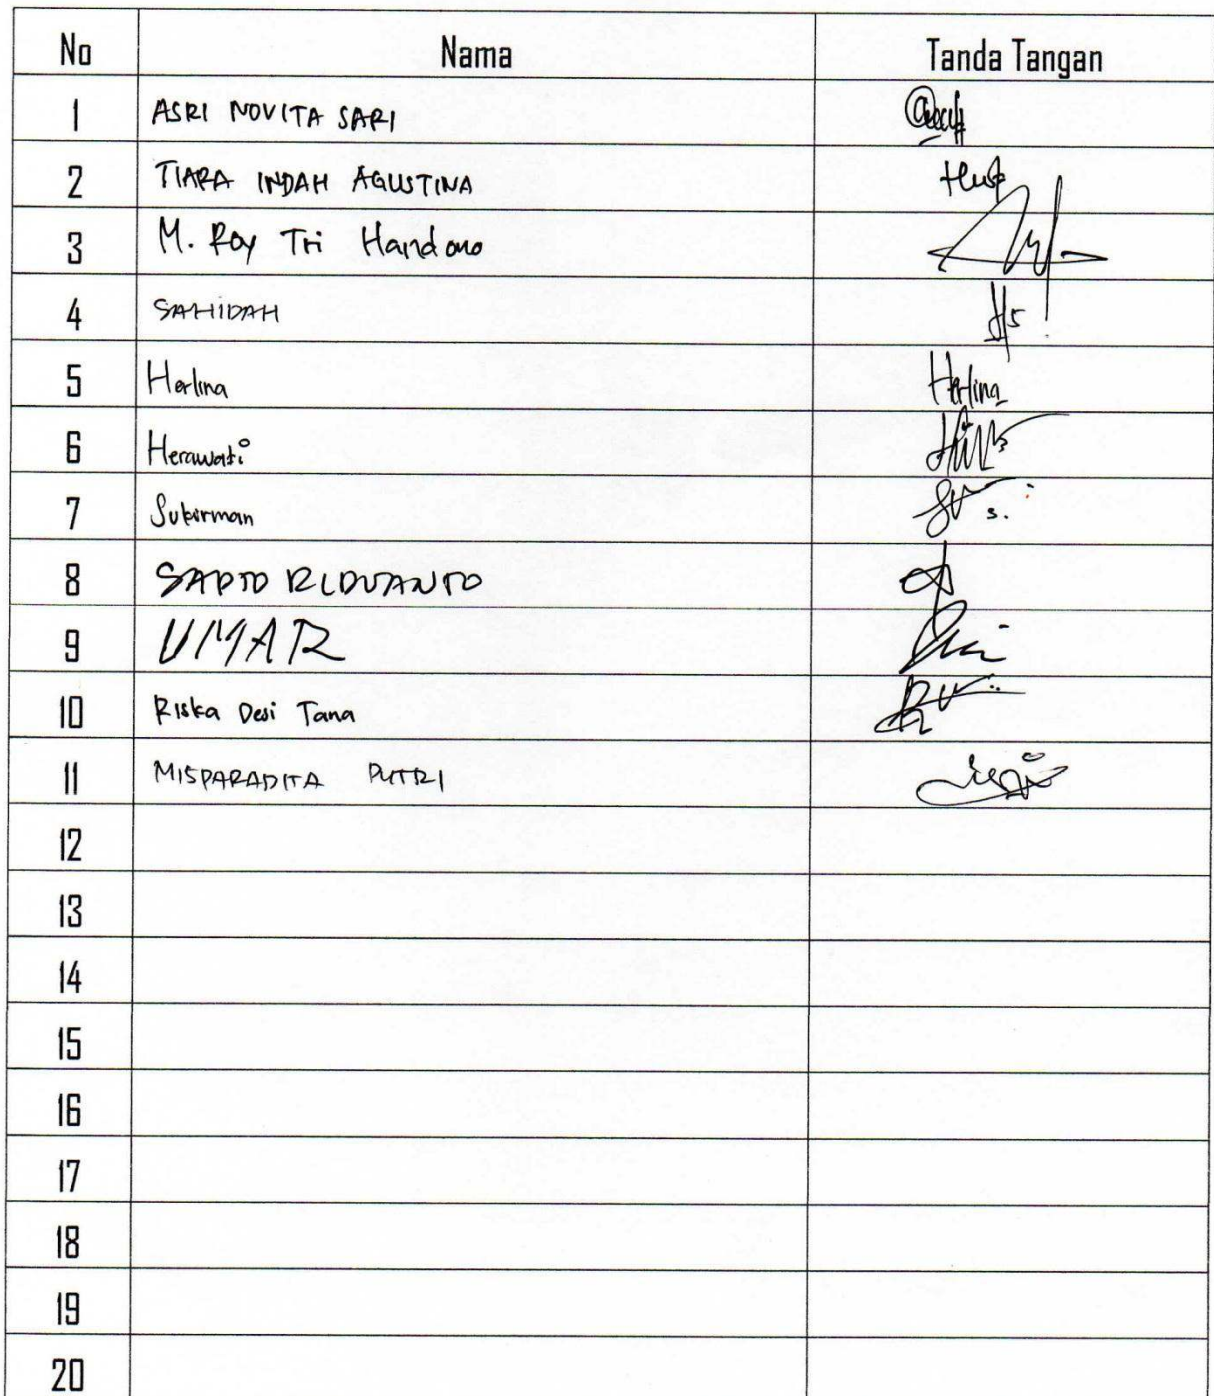 No Nama Tanda Tangan
1 ASRI NOVITA SARI
2 TIARA INDAH AGUSTINA
3 M. Roy Tri Handono
4 SAHIDAH
5 Herlina Herlina
6 Herawati
7 Sukirman
8 SAPTO RIDUANTO
9 UMAR
10 Riska Desi Tana
11 MISPARADITA PUTRI
12
13
14
15
16
17
18
19
20